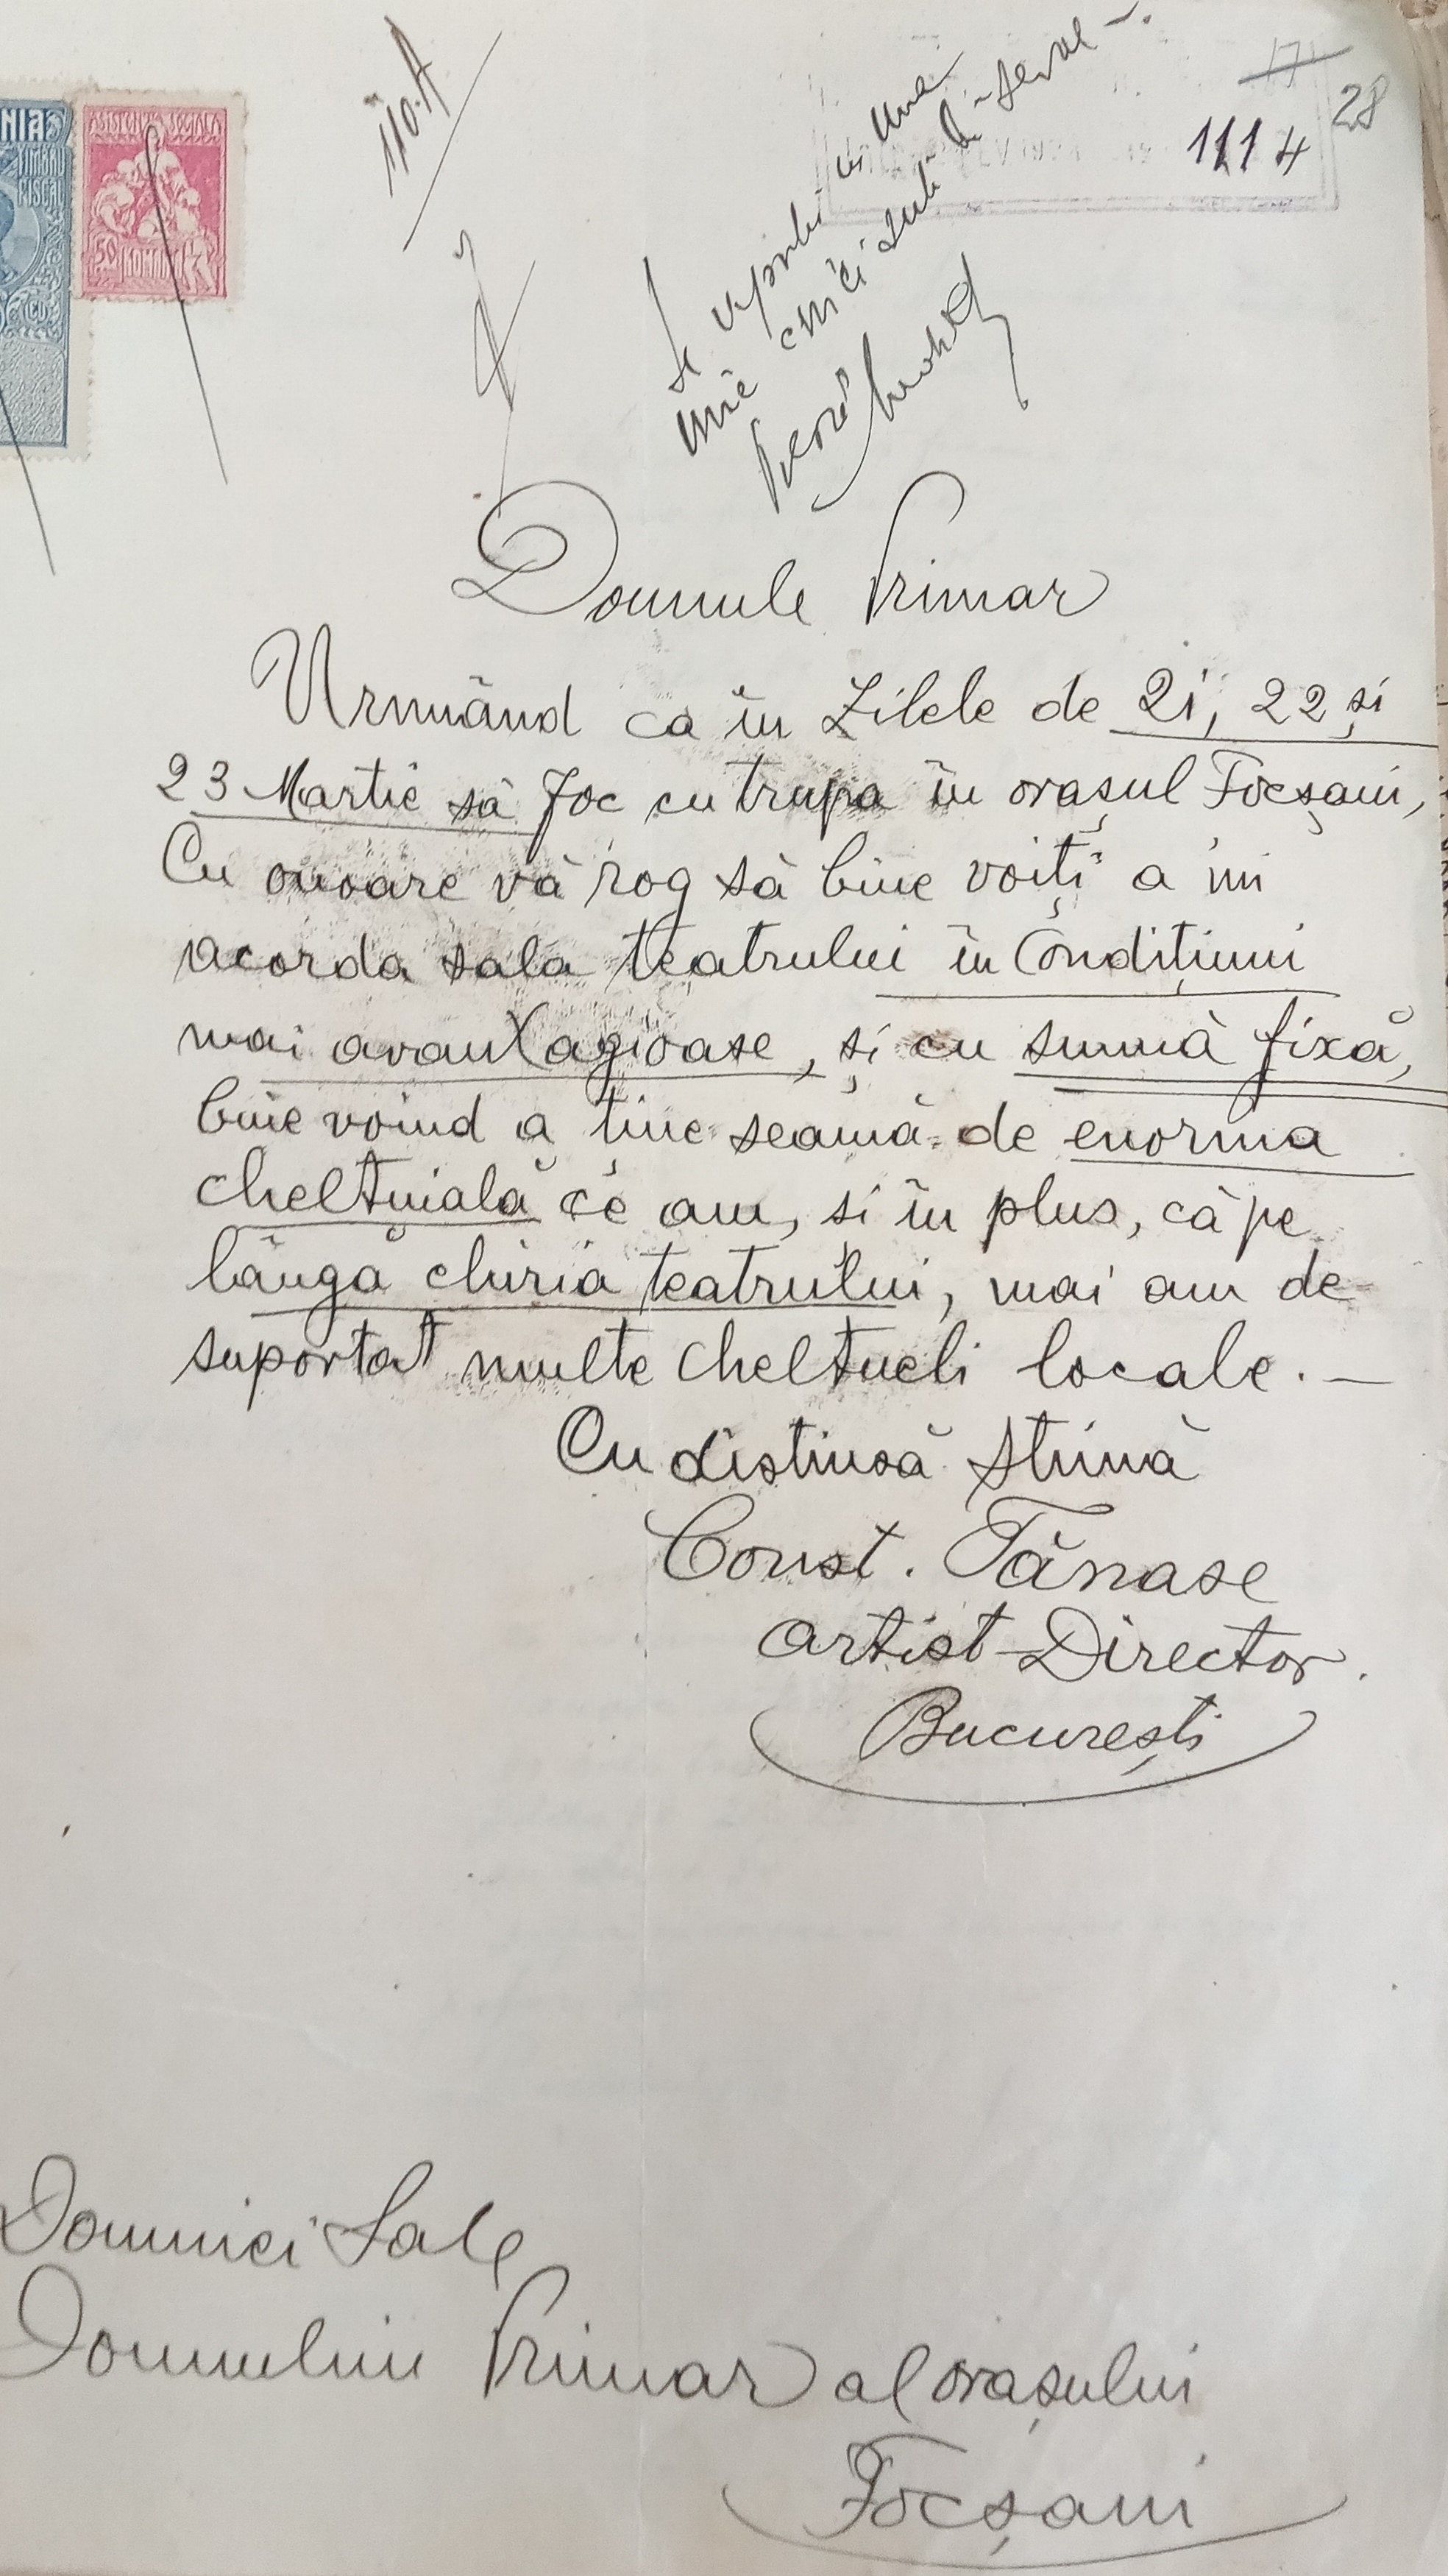 NIA
TIMBRU
FISCAL
ASISTENȚA SOCIALA
50 ROMÂNIA
110.A
17
28
1114
Se
cu una
mie cinci sute lei seral -.
Domnule Primar
Urmând ca în Zilele de 21, 22 și
23 Martie să joc cu trupa în orașul Focșani,
Cu onoare vă rog să bine voiți a 'mi
acorda sala teatrului în Condițiuni
mai avantagioase, și cu sumă fixă,
bine voind a ține seamă de enorma
cheltuială ce am, si în plus, că pe
lângă chiria teatrului, mai am de
suportat multe cheltueli locale. —
Cu distinsă stimă
Const. Tănase
artist-Director.
București
Domniei Sale
Domnului Primar al orașului
Focșani